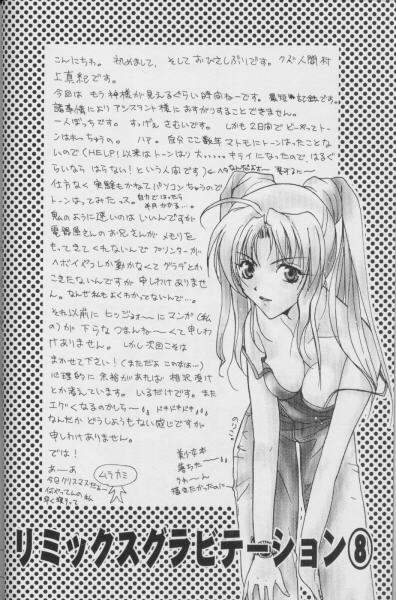 こんにちわ。初めまして、そしておひさしぶりです。クズ人間村
上真紀です。
今回は もう神様が見えるぐらい時間ねーです。最短㊙記録です。
諸事情によりアシスタント様におすがりすることできません。
一人ぼっちです。すっげえ さむいです。しかも2日間でピーがってトー
ンはれーちゅうの。ハァ。自分ここ数年マトモにトーンはったことな
いので(HELP!以来はトーンはり大……キライになったので、はるぐ
らいなら はらない!という人間です)
仕方なく 実験もかねてパソコンちゅうので
トーンはってみたっス。
私のように速いのは いいんですが
電器屋さんのお兄さんが メモリを
もってきてくれないんで プリンターが
ヘボイやつしか動かなくてグラデとか
こきたないんですが 申しわけありませ
ん。なんせ私もよくわかってないんで…。
それ以前に ヒッジョーにマンガ(私
の)が 下らな つまんねーくて申しわ
けありません。しかし次回こそは
まかせて下さい!(まただよ このオンナは…)
心理的に余裕があれば 相沢受け
とか考えています。いるだけです。また
エグくなるのかしらー ドキドキドキドキ
なんだか どうしようもない感じですが
申しわけありません。
では!
あーあ
今日クリスマスだよー
何やってんの 私
早く寝ようって
ムラカミ
美少女本
落ちたー
うわーん
描きたかったのにー
リミックスグラビテーション⑧